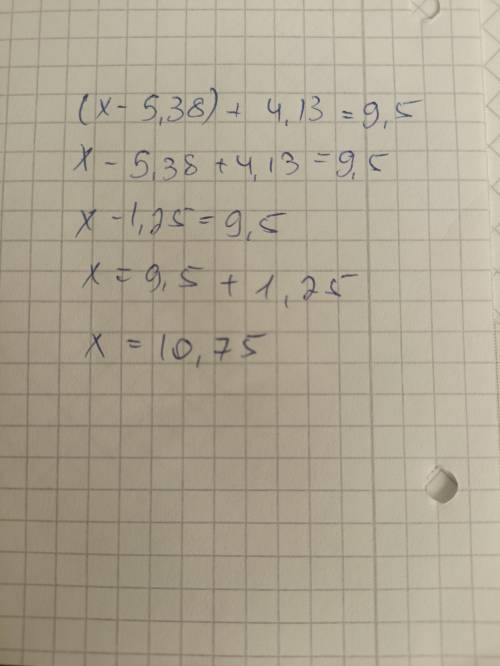 (x - 5,38) + 4,13 = 9,5
x - 5,38 + 4,13 = 9,5
x - 1,25 = 9,5
x = 9,5 + 1,25
x = 10,75